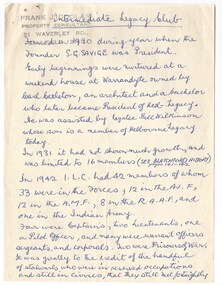 FRANK
PROPERTY CONSULTANT
21 WAVERLEY RD.
Intermediate Legacy Club
Founded in 1930 during year when the
Founder S.G. SAVIGE was President.
Early beginnings were nurtured at a
weekend house at Warrandyte owned by
an architect and a bachelor
who later became President of
He was assisted by
whose son is a member of Melbourne Legacy
today.
In 1931 it had not shown much growth, and
was limited to 16 members
In 1942 I.L.C. had 82 members of whom
33 were in the Forces; 12 in the A.I.F,
12 in the A.M.F., 8 in the R.A.A.F., and
one in the Indian Army.
Four were Captains, two Lieutenants, one
a Pilot Officer, and many were warrant officers
sergeants, and corporals. Two were Prisoners of War.
It was greatly to the credit of the handful
of stalwarts who were in reserved occupations
and still in civvies, that they still met